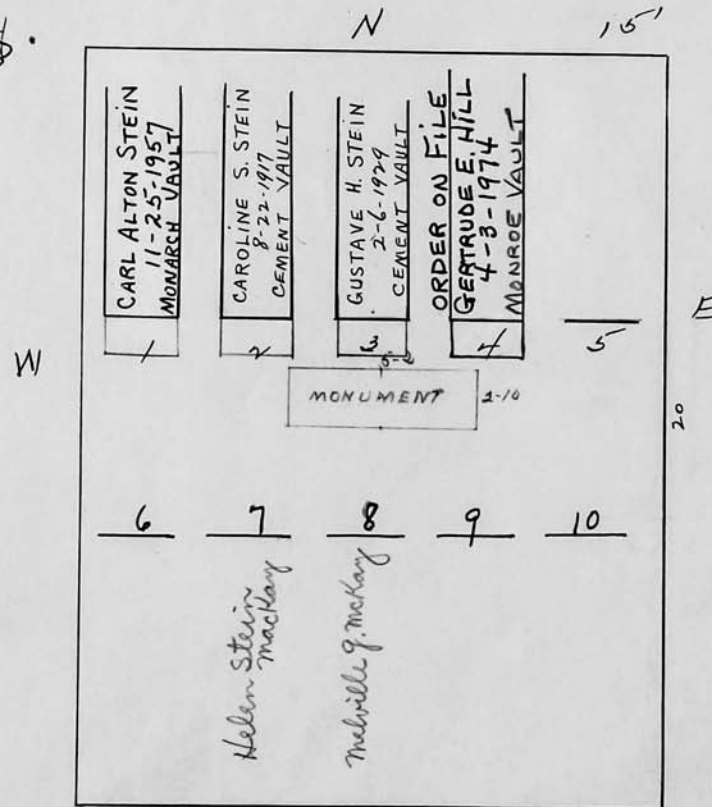 N
15'
CARL ALTON STEIN
11-25-1957
MONARCH VAULT
CAROLINE S. STEIN
8-22-1917
CEMENT VAULT
GUSTAVE H. STEIN
2-6-1929
CEMENT VAULT
ORDER ON FILE
GERTRUDE E. HILL
4-3-1974
MONROE VAULT
1
2
3
4
5
W
E
5-2
MONUMENT
2-10
20
6
7
8
9
10
Helen Stein
MacKay
Melville J. McKay